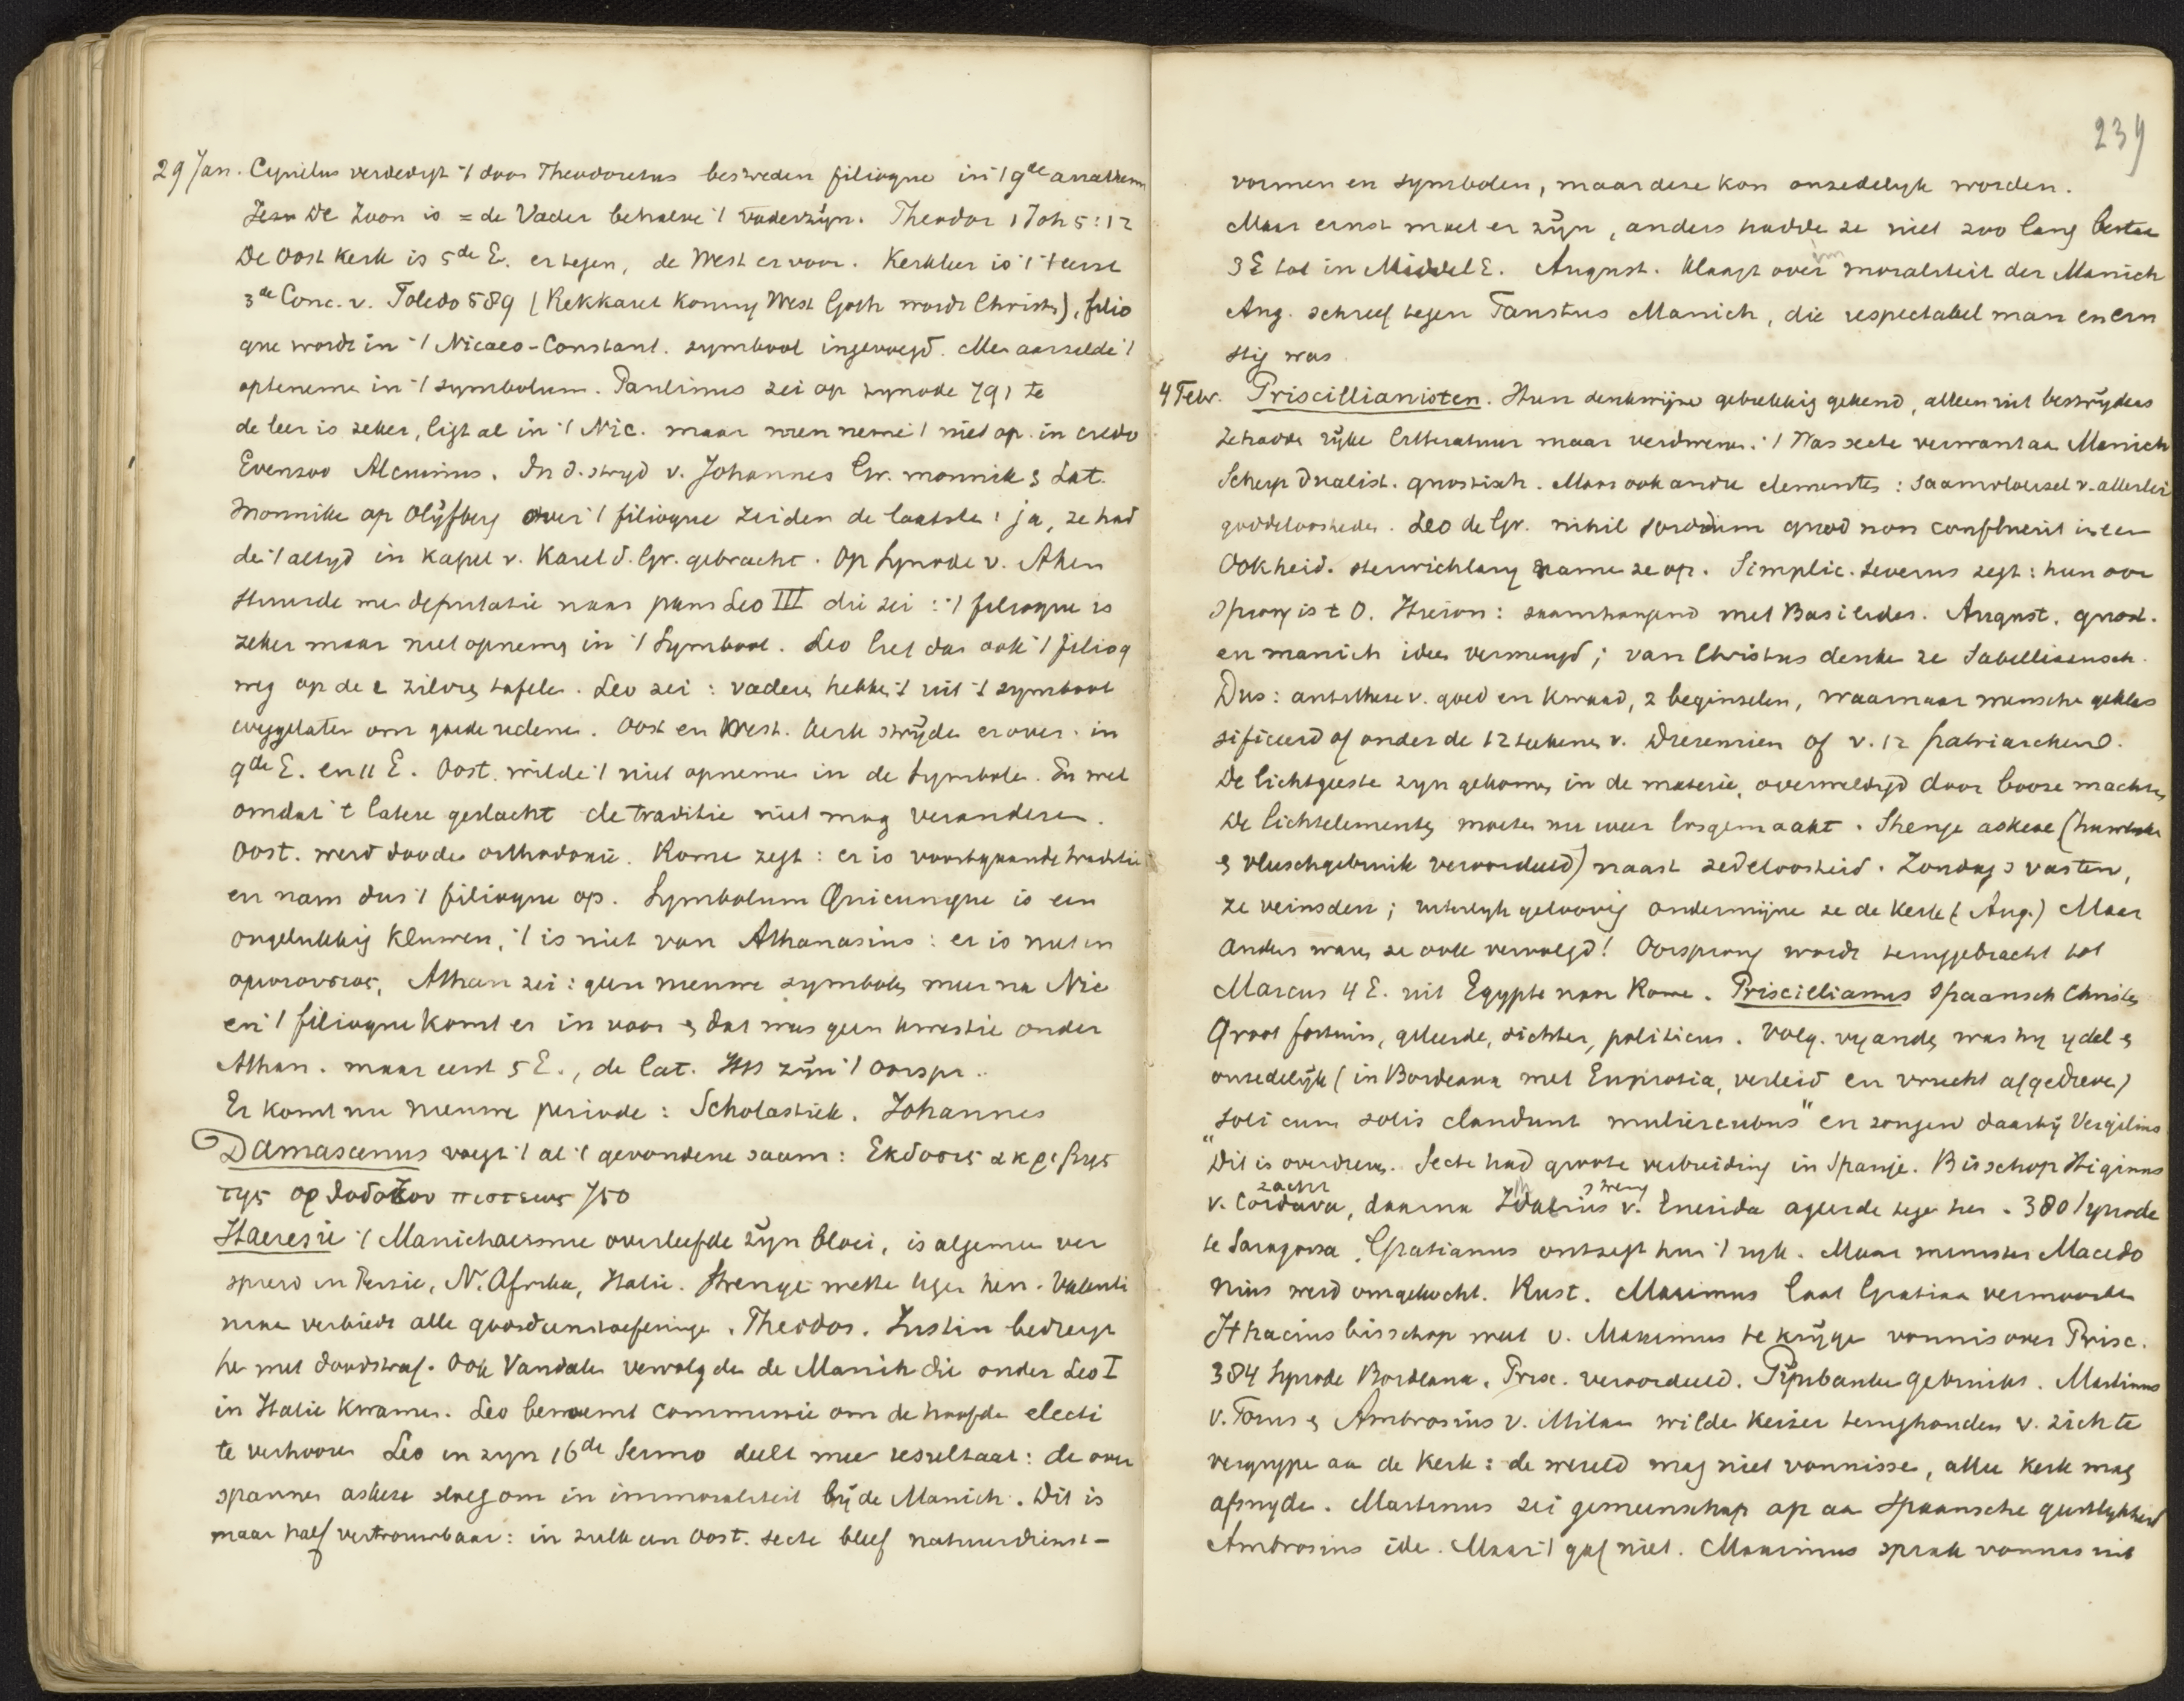 29 Jan. Cyrillus verdedigt 't door Theodoretus bestreden filioque in 't 9de anathem
De Zoon is = de Vader behalve 't Vaderzijn. Theodor 1 Joh 5:12
De Oost Kerk is 5de E. er tegen, de West er voor. Kerkleer is 't 't eerst
3de Conc. v. Toledo 589 (Rekkared Koning West Goth wordt Christ), filio
que wordt in 't Nicaeo-Constant. symbool ingevoegd. Men aarzelde 't
opteneme in 't symbolum. Paulinus zei op synode 791 te
de leer is zeker, ligt al in 't Nic. maar men neme 't niet op in credo
Evenzoo Alcuinus. In d. stryd v. Johannes Gr. monnik & Lat.
Monnike op Olijfberg over 't filioque zeiden de laatste: ja, ze had
de 't altyd in kapel v. Karel d. Gr. gebracht. Op Synode v. Aken
stuurde men deputatie naar paus Leo III die zei: 't filioque is
zeker maar niet opneme in 't Symbool. Leo liet dan ook 't filioq
weg op de 2 zilvre tafele. Leo zei: vaders hebbe 't uit 't symbool
weggelaten om goede redene. Oost en West. Kerk strijde erover in
9de E. en 11 E. Oost. wilde 't niet opneme in de Symbole. En wel
omdat 't latere geslacht de traditie niet mag veranderen.
Oost. werd doode orthodoxie. Rome zegt: er is voortgaande traditie
en nam dus 't filioque op. Symbolum Quicunque is een
ongelukkig kluwen, 't is niet van Athanasius: er is niet in
ομοουσιος, Athan zei: geen nieuwe symbole meer na Nic
en 't filioque komt er in voor & dat was geen kwestie onder
Athan. maar eerst 5 E., de Lat. HSS zijn 't oorspr.
Er komt nu nieuwe periode: Scholastiek. Johannes
Damascenus voegt 't al 't gevondene saam: Εκδοσις ακριβης
της ορθοδοξου πιστεως 750
Haeresie 't Manichaeisme overleefde zijn bloei, is algemeen ver
spreid in Perzie, N. Afrika, Italie. Strenge wette tegen hen. Valenti
niaan verbiedt alle godsdienstoefeninge. Theodos. Justin bedreigt
he met doodstraf. Ook Vandale vervolgde de Manich die onder Leo I
in Italie kwame. Leo benoemt commissie om de hoofde electi
te verhoore Leo in zyn 16de Sermo deelt mee resultaat: de over
spannen askese sloeg om in immoraliteit bij de Manich. Dit is
maar half vertrouwbaar: in zulk een Oost. secte bleef natuurdienst-
239
vormen en symbolen, maar deze kon onzedelyk worden.
Maar ernst moet er zijn, anders hadde ze niet zoo lang bestaa
3 E tot in Middel E. August. klaagt over immoraliteit der Manich
Aug. schreef tegen Faustus Manich, die respectabel man en ern
stig was
4 Febr. Priscillianisten. Hun denkwijze gebrekkig gekend, alleen uit bestrijders
ze hadde rijke litteratuur maar verdwene. 't Was secte verwant aa Manich
Scherp dualist. gnostisch. Maar ook andre elemente: saamvloeisel v. allerlei
goddeloosheden. Leo de Gr. nihil sordium quod non confluerit in een
Ook heid. sterrichlary name ze op. Simplic. Severus zegt: hun oor
sprong is t O. Hieron: saamhangend met Basilides. August. gnost.
en manich idee vermengd; van Christus denke ze Sabelliaansch.
Dus: antithese v. goed en kwaad, 2 beginselen, waarnaar mensche geklas
sificeerd of onder de 12 teekene v. Dierenriem of v. 12 patriarchen.
De lichtgeeste zyn gekome in de materie, overweldigd door booze machte
De lichtelemente moete nu weer losgemaakt. Strenge askese (huwelyk
& vleeschgebruik veroordeeld) naast zedeloosheid. Zondags vasten,
ze veinsden; uiterlyk geloovig ondermijne ze de kerk (Aug.) Maar
anders ware ze ook vervolgd! Oorsprong wordt teruggebracht tot
Marcus 4 E. uit Egypte naar Rome. Priscillianus Spaansch Christe
Groot fortuin, geleerde, dichter, politicus. Volg. vyande was hy ydel &
onzedelijk (in Bordeaux met Euprotia, verleid en vrucht afgedreve)
"soli cum solis claudunt muliercubus" en zongen daarbij Vergilius
Dit is overdreve. Secte had groote verbreiding in Spanje. Bisschop Higinus
zacht streng
v. Cordova, daarna Idatius v. Emerida ageerde tege hen. 380 Synode
te Saragossa. Gratianus ontzegt hun 't ryk. Maar minister Macedo
nius werd omgekocht. Rust. Maximus laat Gratiaa vermoorde
Ithacius bisschop weet v. Maximus te krijge vonnis over Prisc.
384 Synode Bordeaux. Prisc. veroordeeld. Pijnbanke gebruikt. Martinus
v. Tours & Ambrosius v. Milaa wilde keizer terughouden v. zich te
vergrype aa de Kerk: de wereld mag niet vonnisse, allee kerk mag
afsnyde. Martinus zei gemeenschap op aa Spaansche geestlykheid
Ambrosius ide. Maar 't gaf niet. Maximus sprak vonnis uit